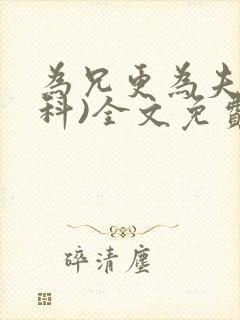 為兄更為夫
科)全文免費
碎清塵